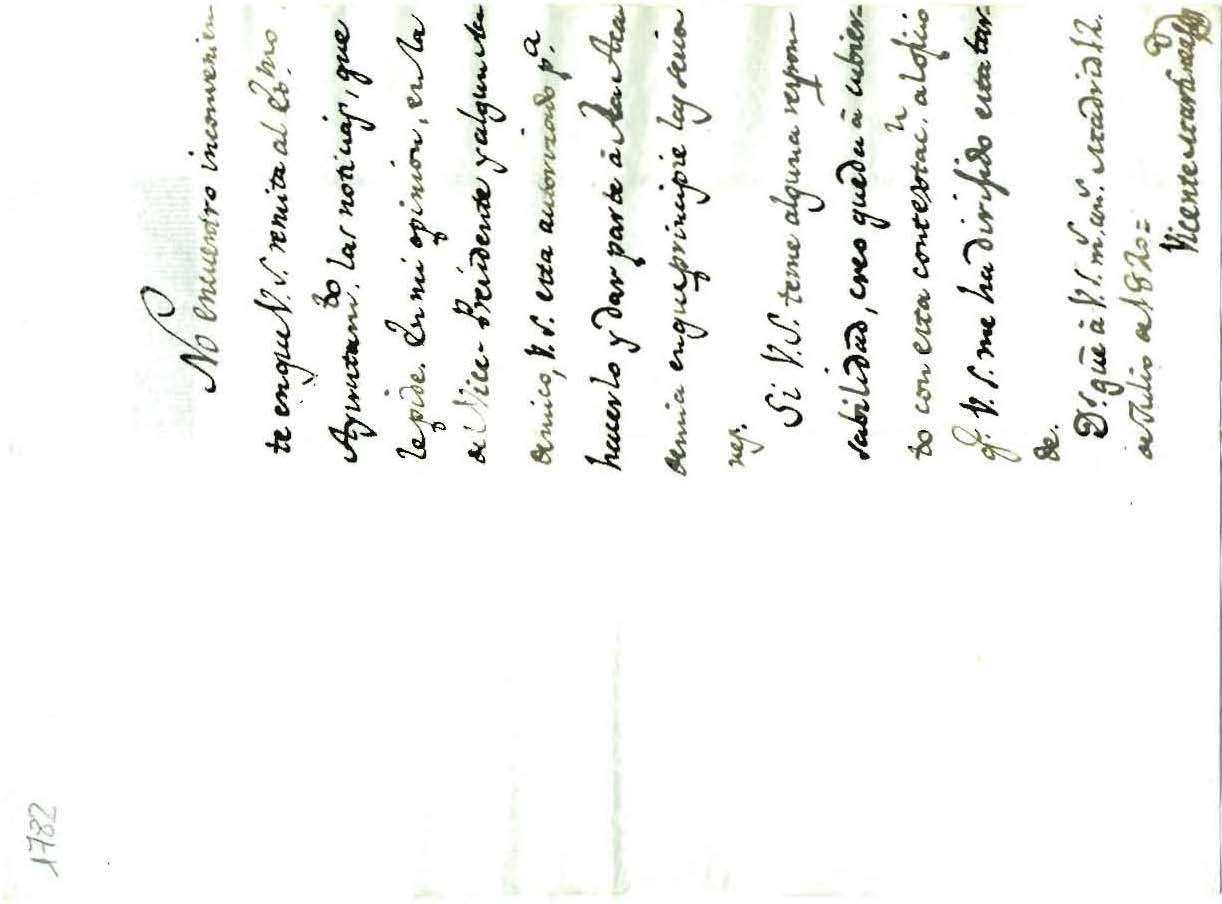 1782
No encuentro inconvenien
te en que V.S. remita al Exmo
Ayuntam.to las noticias, que
le pide. En mi opinion, en la
de Vice-Presidente y algun Aca
demico, V.S. esta autorizado p.a
hacerlo y dar parte à la Aca
demia en que principie las sesio
nes.
Si V.S. teme alguna respon
sabilidad, creo queda à cubier-
to con esta contestac.n al oficio
q.e V.S. me ha dirigido esta tar-
de.
D.s gũe à V.S. m.s an.s Madrid 12.
de Julio de 1820=
Vicente